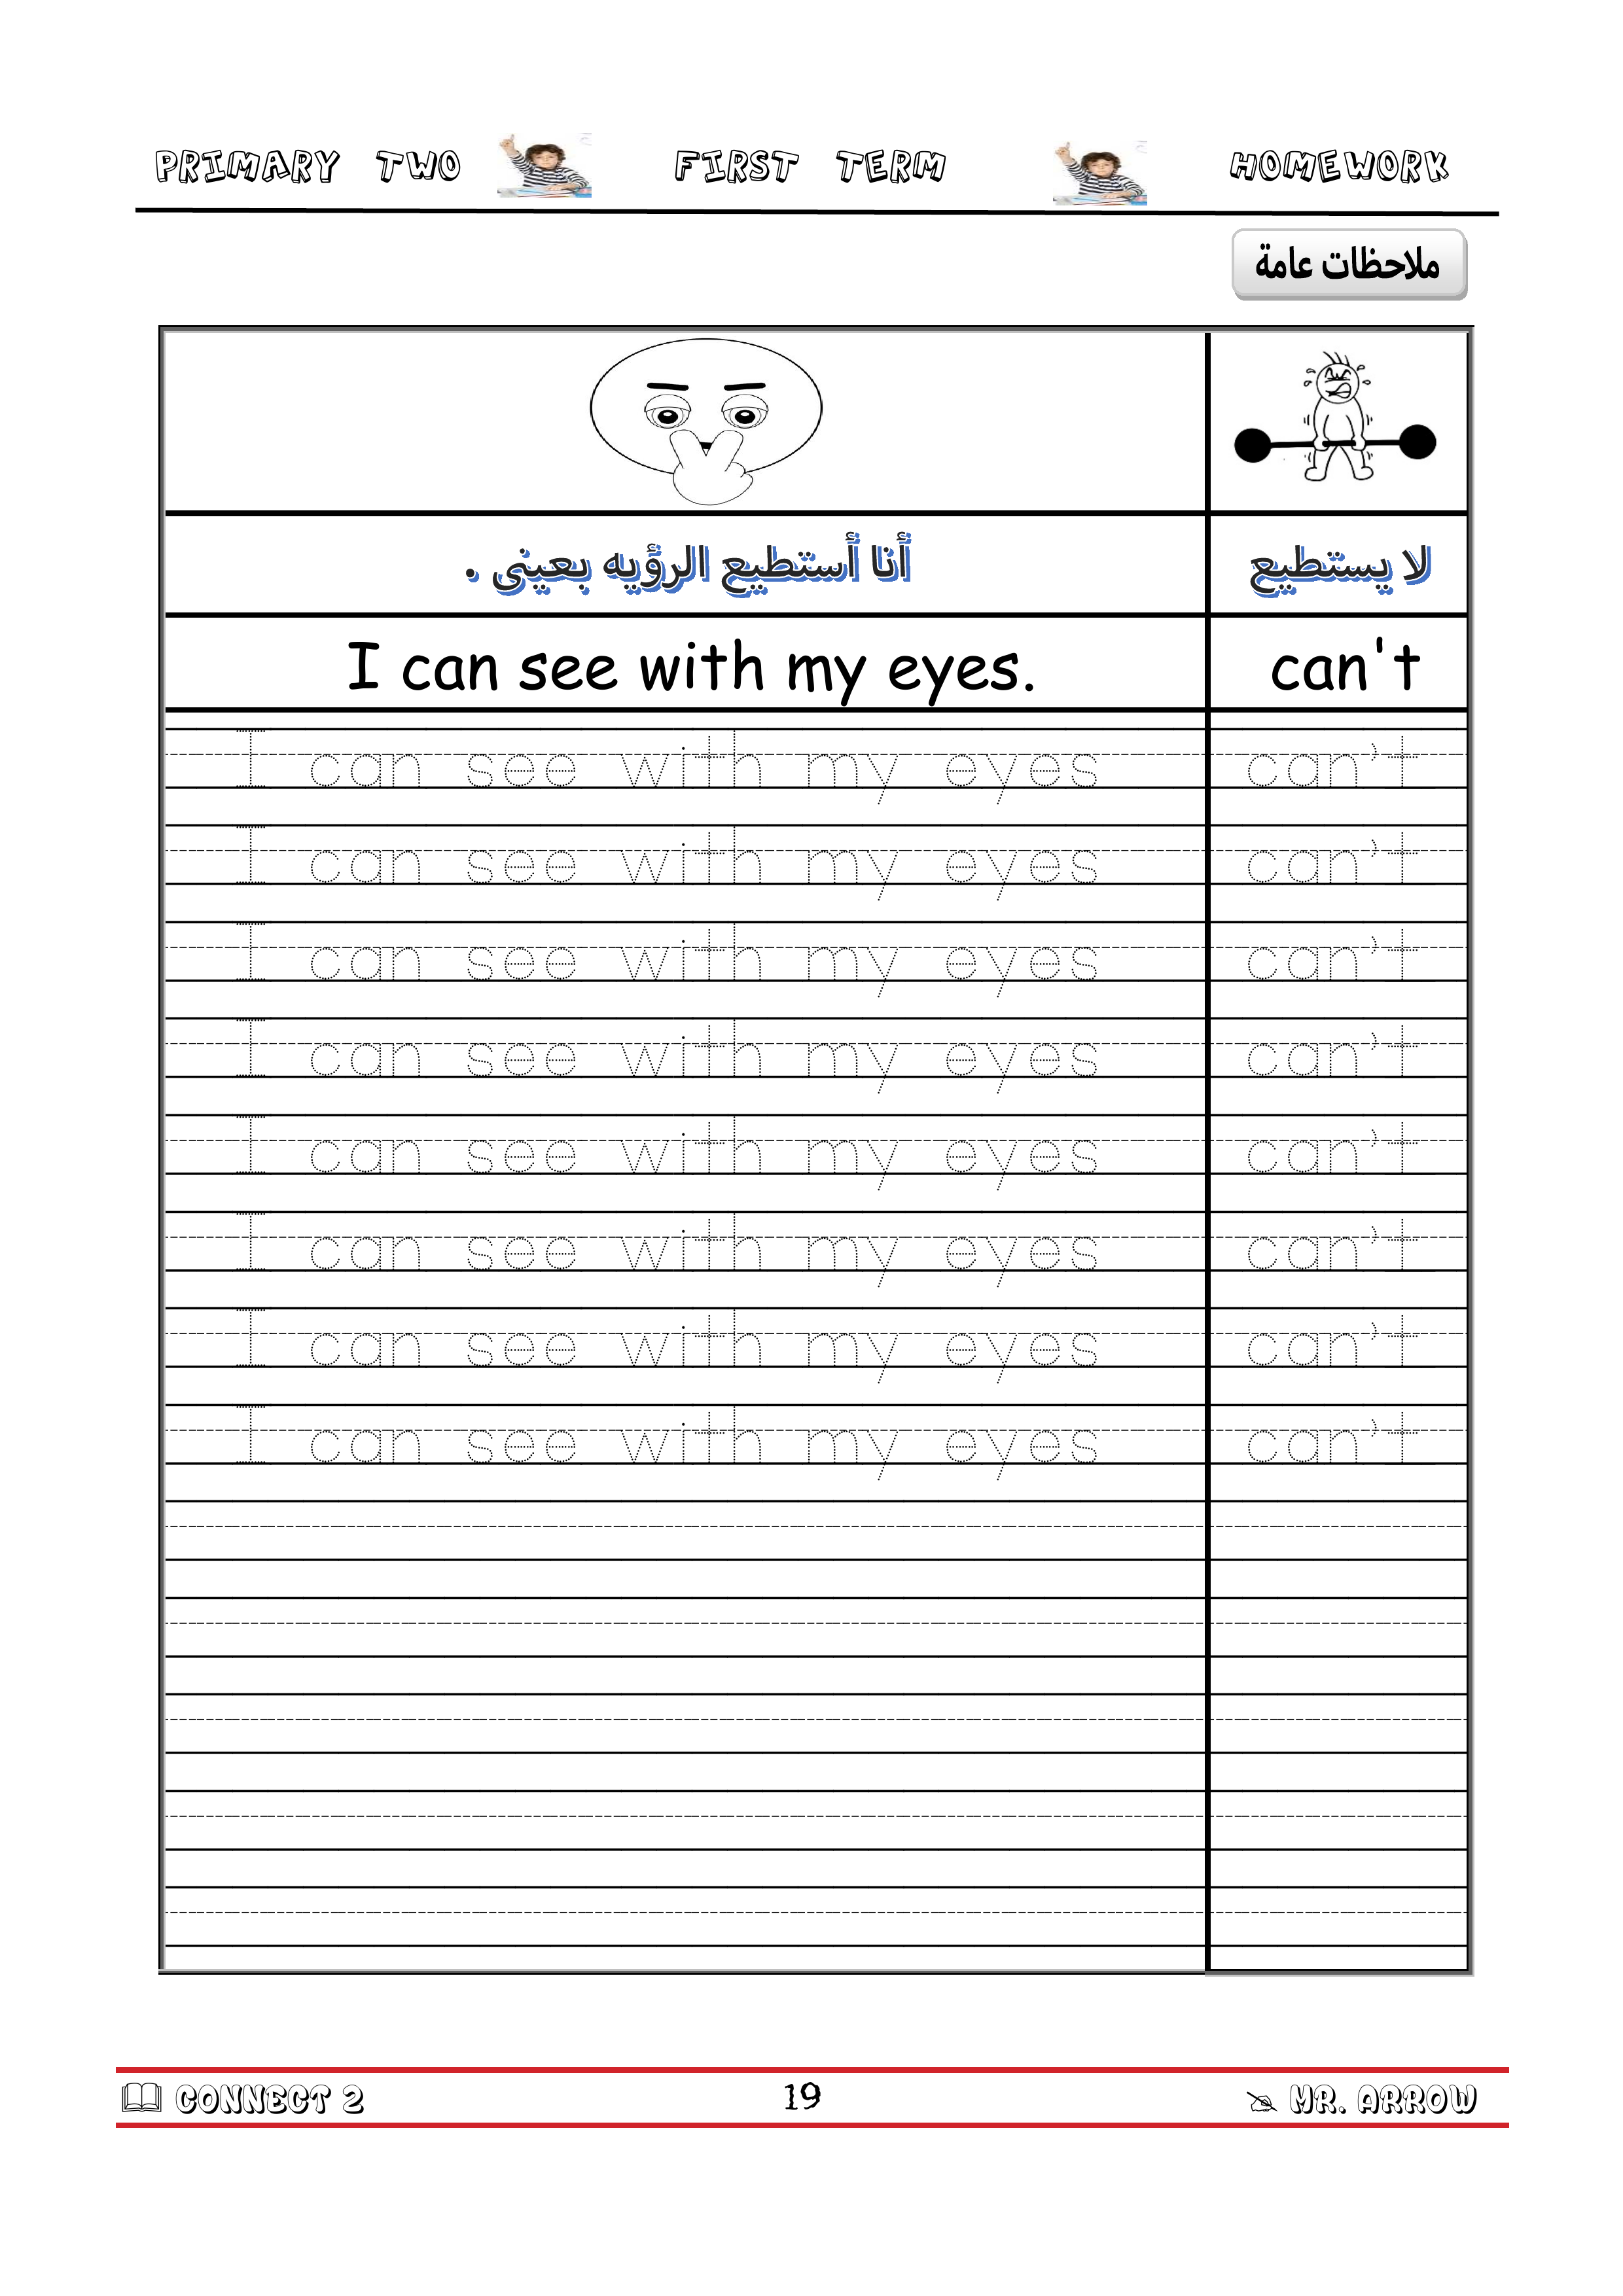 PRIMARY TWO FIRST TERM HOMEWORK
ملاحظات عامة
أنا أستطيع الرؤيه بعينى . لا يستطيع
I can see with my eyes. can't
I can see with my eyes can't
I can see with my eyes can't
I can see with my eyes can't
I can see with my eyes can't
I can see with my eyes can't
I can see with my eyes can't
I can see with my eyes can't
I can see with my eyes can't
CONNECT 2 19 MR. ARROW